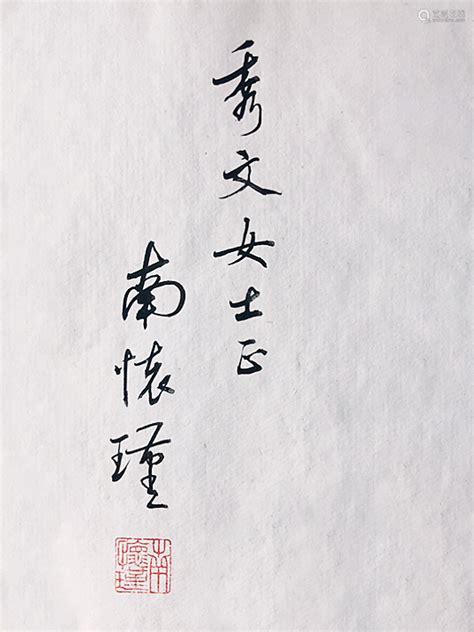 秀文女士正
南懷瑾
南懷瑾